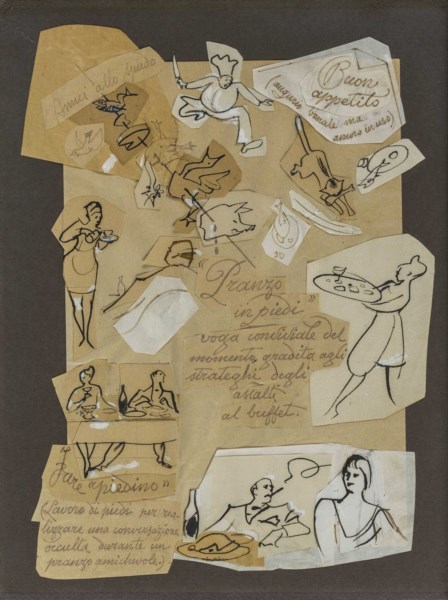 Amici allo spiedo
Buon
appetito
(augurio
banale ma
ancora in uso)
"Pranzo
in piedi"
voga conviviale del
momento, gradita agli
strateghi degli
assalti
al buffet.
"Fare a piesino"
(Lavoro di piedi per rea-
lizzare una conversazione
occulta durante un
pranzo amichevole.)